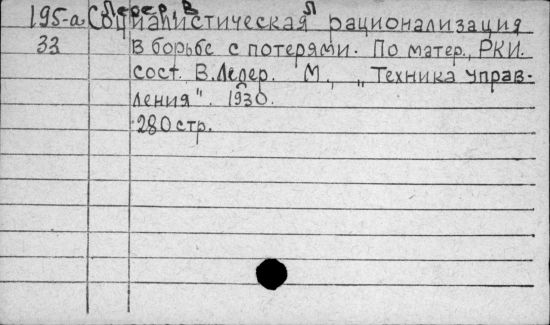 Ледер, В
195-а Социалистическая рационализация
33 в борьбе с потерями. По матер. РКИ.
сост. В. Ледер. М., „Техника управ-
ления". 1930.
280 стр.